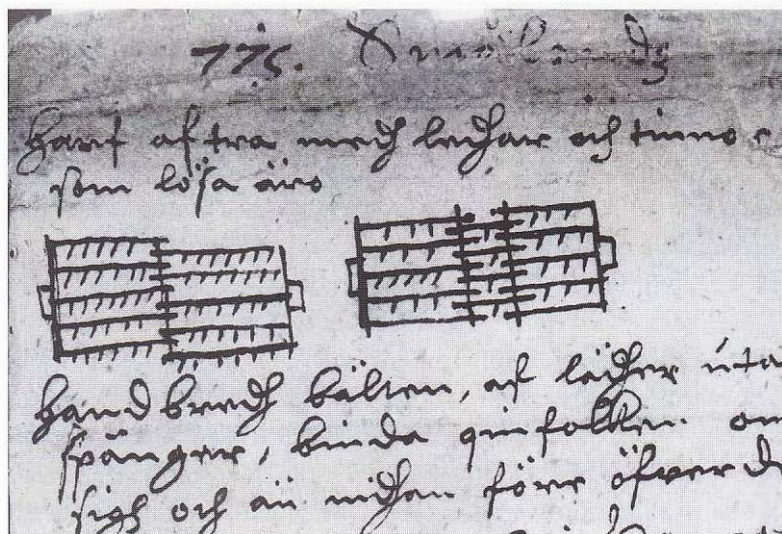 775. Smolandz
Harf af tra medh ledhar och tinnor
som lösa äro
Handbredh bälten, af lädher uta
spänger, binda qinfolken om
sigh och än nidhan före öfver